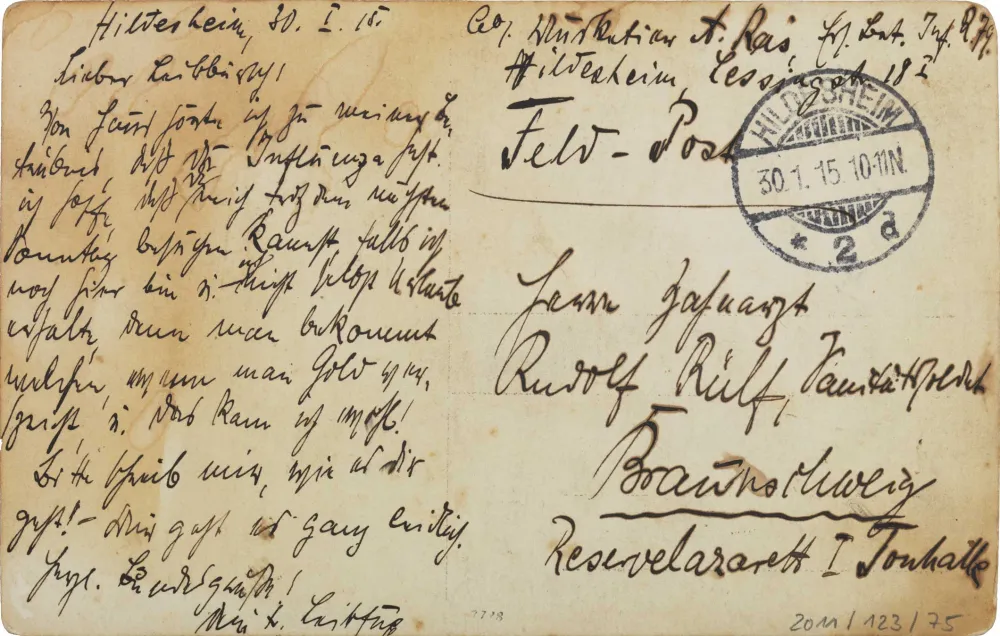 Hildesheim, 30. I. 15.
Lieber Leibbursch!
Von Haus hörte ich zu meiner Be-
trübnis, daß Du Influenza hast.
ich hoffe, daß Du mich trotzdem nächsten
Sonntag besuchen kannst, falls ich
noch hier bin u. nicht selbst Urlaub
erhalte, denn man bekommt
welchen, wenn man Gold ver-
spricht, u. das kann ich wohl!
Bitte schreib mir, wie es dir
geht! – Mir geht es ganz leidlich.
Herzl. Bundesgrüße!
Dein l. Leibfux
Abs. Musketier A. Ras, Ers. Bat. Inf. R. 79.
Hildesheim, Lessingstr. 18 I
Feld-Post
HILDESHEIM
30.1.15.10-11N.
* 2 d
Herrn Zahnarzt
Rudolf Rülf, Sanitätssoldat
Braunschweig
Reservelazarett I Tonhalle
2011/123/75